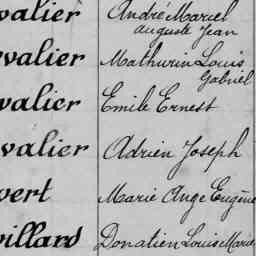 valier André Marcel
Auguste Jean
valier Mathurin Louis
Gabriel
valier Emile Ernest
valier Adrien Joseph
vert Marie Ange Eugène
villard Donatien Louis Marie